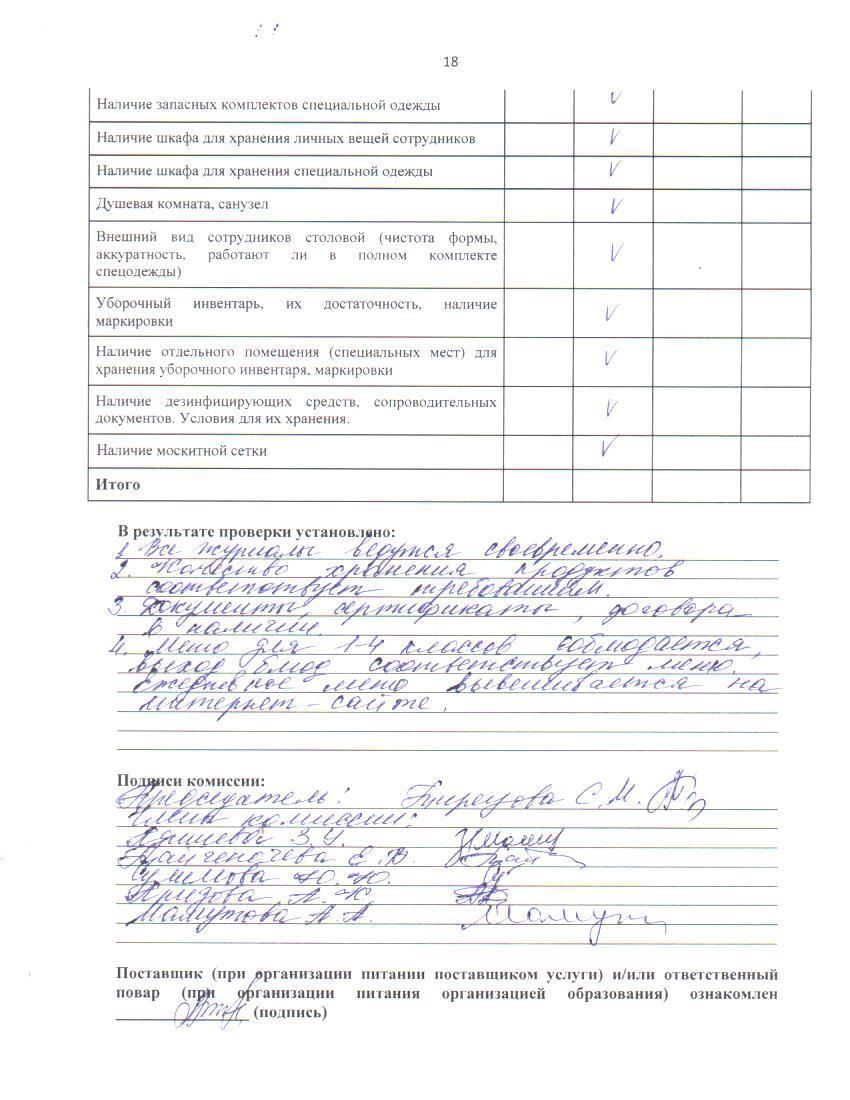 18
Наличие запасных комплектов специальной одежды V
Наличие шкафа для хранения личных вещей сотрудников V
Наличие шкафа для хранения специальной одежды V
Душевая комната, санузел V
Внешний вид сотрудников столовой (чистота формы,
аккуратность, работают ли в полном комплекте V
спецодежды)
Уборочный инвентарь, их достаточность, наличие
маркировки V
Наличие отдельного помещения (специальных мест) для
хранения уборочного инвентаря, маркировки V
Наличие дезинфицирующих средств, сопроводительных
документов. Условия для их хранения. V
Наличие москитной сетки V
Итого
В результате проверки установлено:
1. Все журналы ведутся своевременно.
2. Качество хранения продуктов
соответствует требованиям.
3. Документы, сертификаты, договора
в наличии.
4. Меню для 1-4 классов соблюдается,
выход блюд соответствует меню.
Ежедневное меню вывешивается на
интернет-сайте.
Подписи комиссии:
Председатель: С.М.
Члены комиссии:
З.У.
Е.В.
Ю.Ю.
А.К.
Мамутова А.А. Мамут
Поставщик (при организации питании поставщиком услуги) и/или ответственный
повар (при организации питания организацией образования) ознакомлен
(подпись)